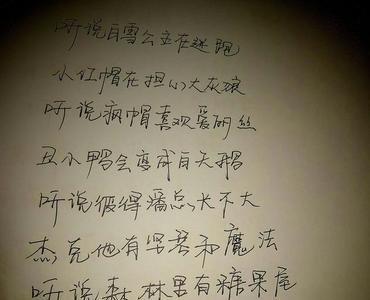 听说白雪公主在逃跑
小红帽在担心大灰狼
听说疯帽喜欢爱丽丝
丑小鸭会变成白天鹅
听说彼得潘总长不大
杰克他有竖琴和魔法
听说森林里有糖果屋